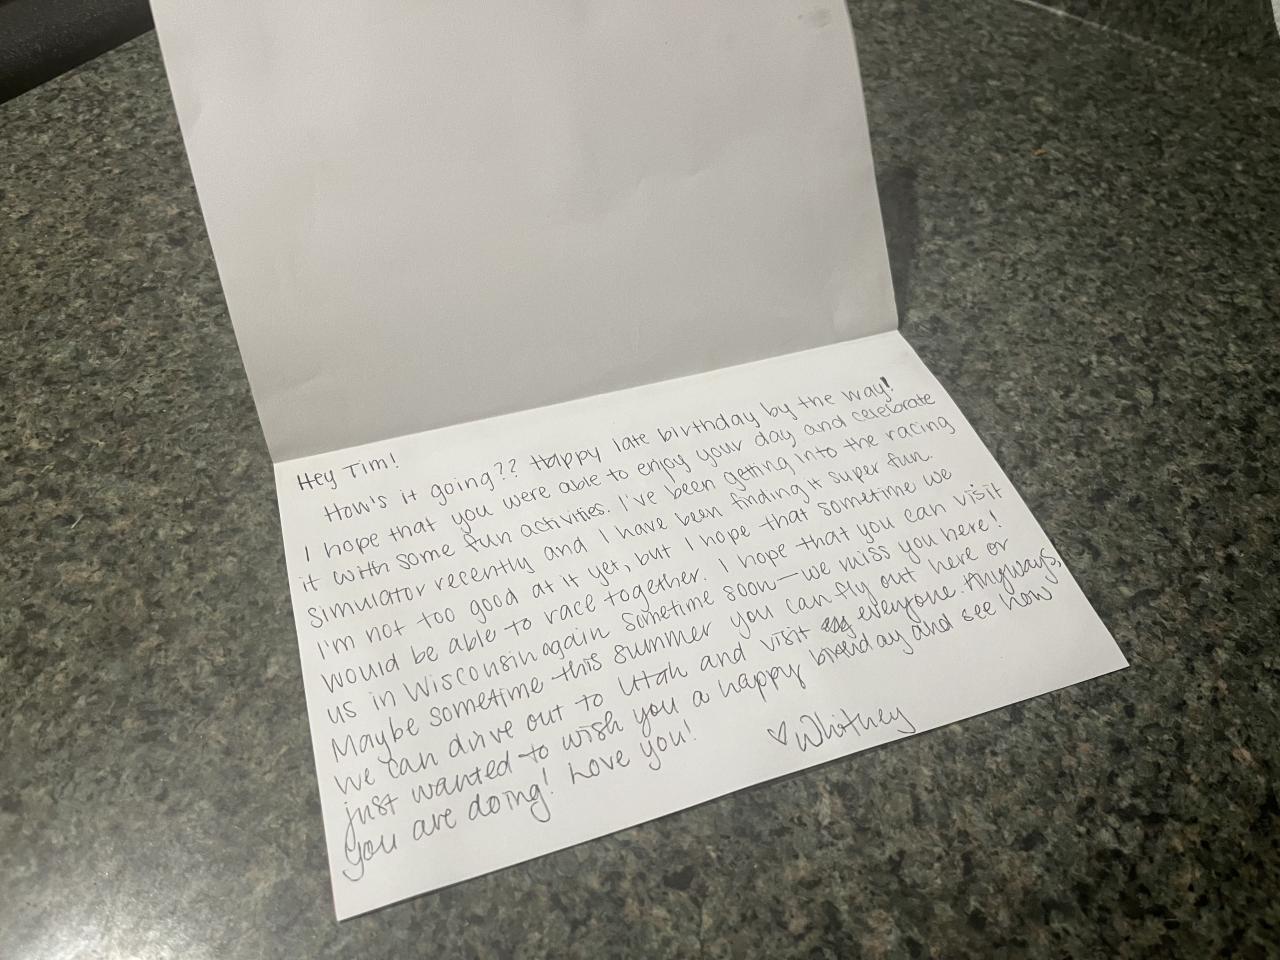 Hey Tim!
How's it going?? Happy late birthday by the way!
I hope that you were able to enjoy your day and celebrate
it with some fun activities. I've been getting into the racing
simulator recently and I have been finding it super fun.
I'm not too good at it yet, but I hope that sometime we
would be able to race together. I hope that you can visit
us in Wisconsin again sometime soon—we miss you here!
Maybe sometime this summer you can fly out here or
we can drive out to Utah and visit everyone. Anyways,
just wanted to wish you a happy birthday and see how
you are doing! Love you!
♡Whitney